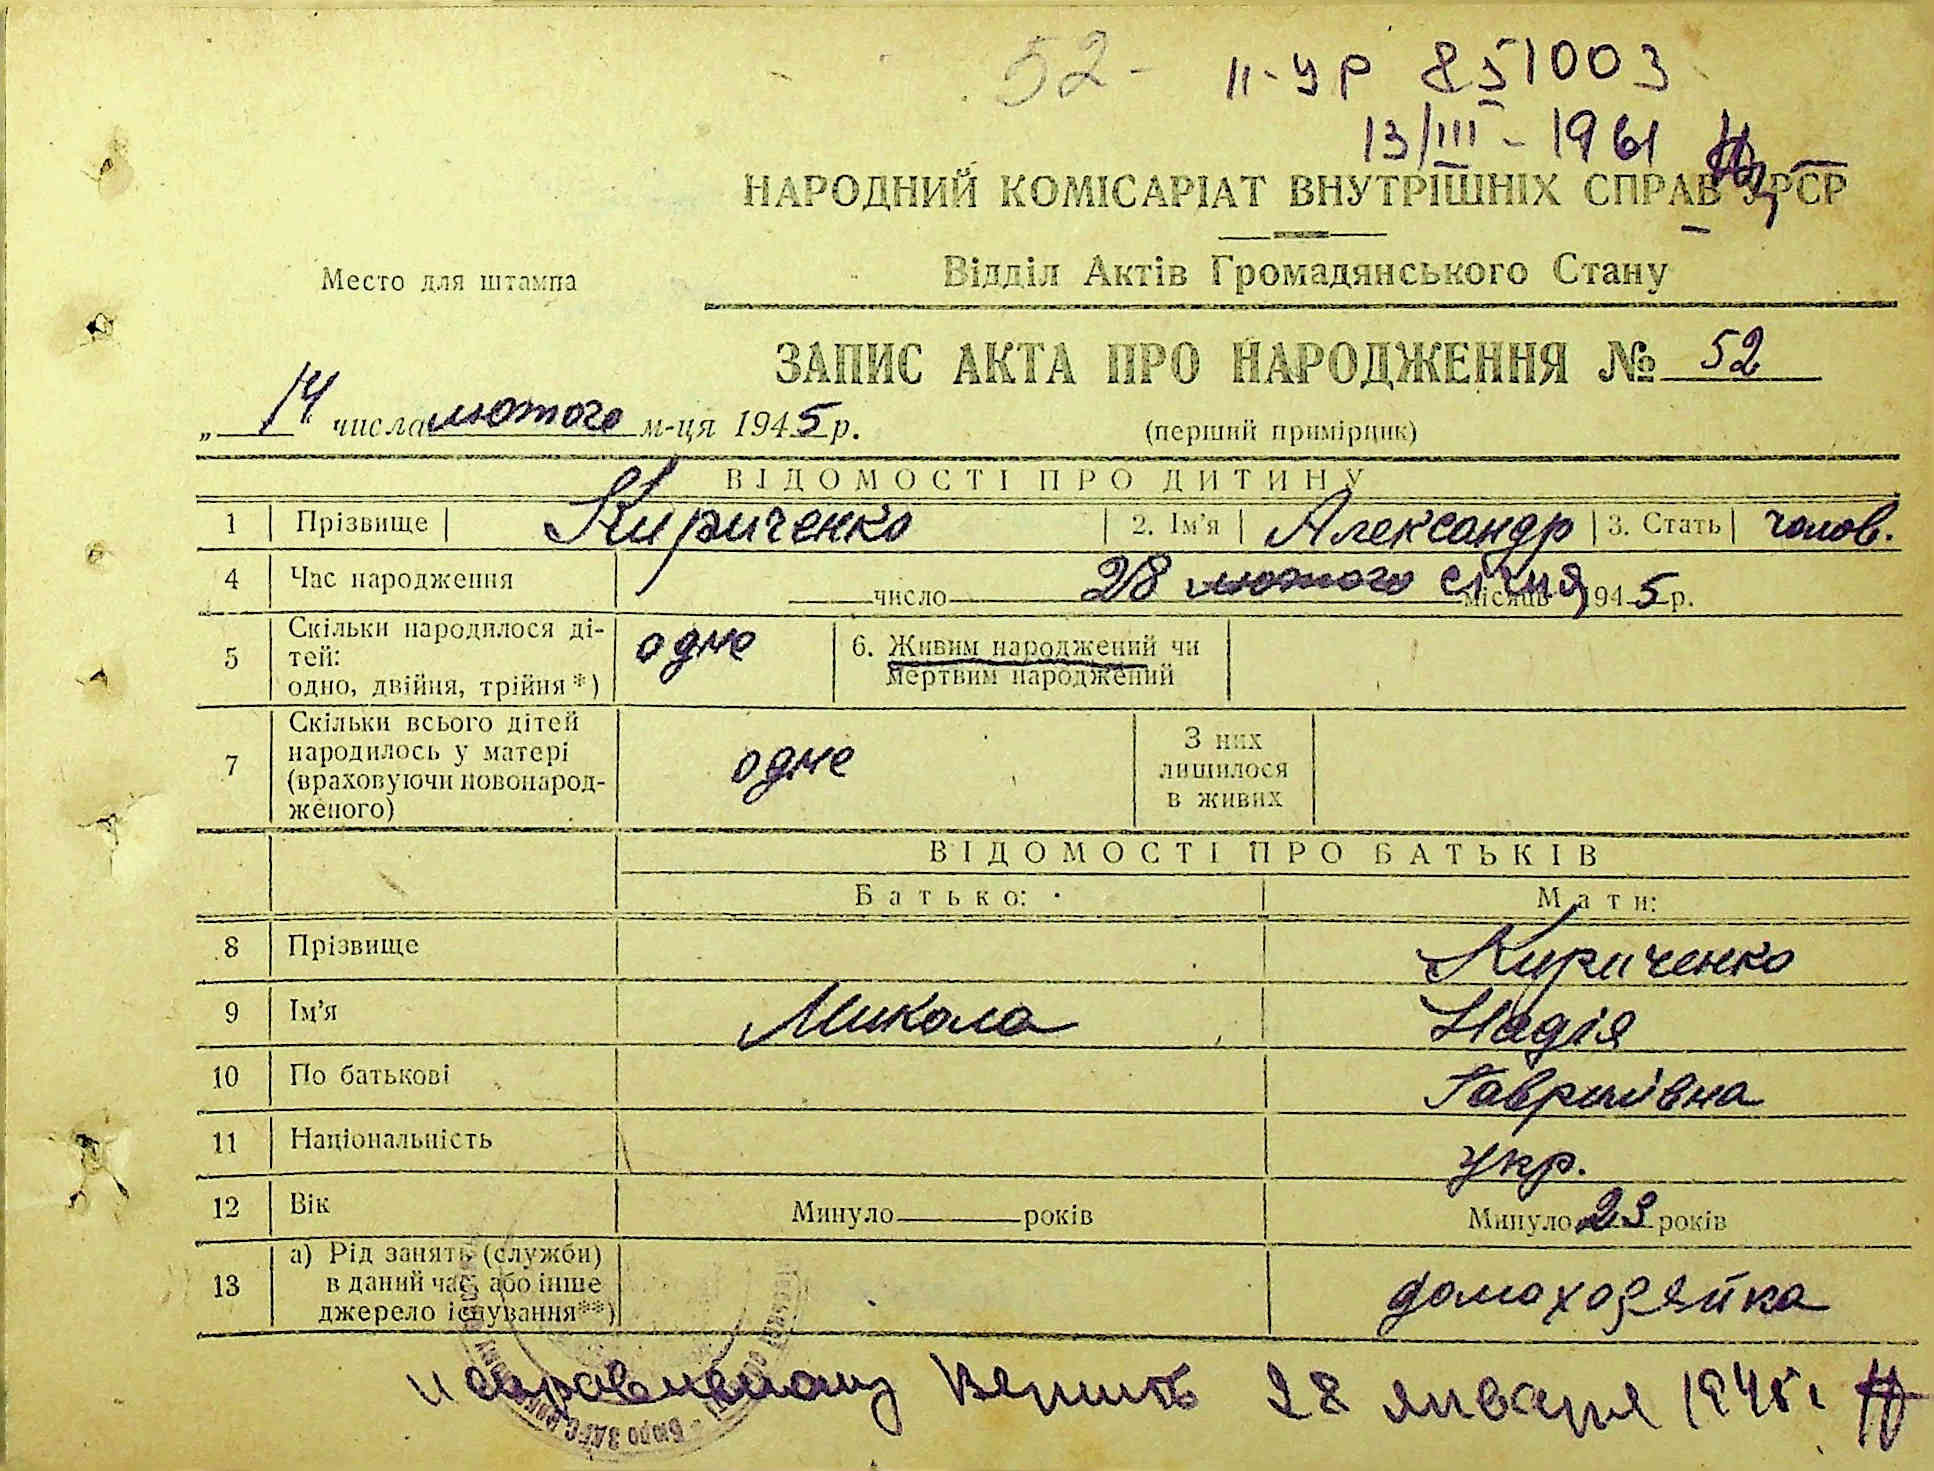 52-
II-УР 851003
13/III - 1961
НАРОДНИЙ КОМІСАРІАТ ВНУТРІШНІХ СПРАВ УРСР
Место для штампа
Відділ Актів Громадянського Стану
ЗАПИС АКТА ПРО НАРОДЖЕННЯ № 52
„ 14 " числа лютого м-ця 1945 р.
(перший примірник)
ВІДОМОСТІ ПРО ДИТИНУ
1 Прізвище Кириченко 2. Ім'я Александр 3. Стать чолов.
4 Час народження число 28 лютого січня місяць 1945 р.
5 Скільки народилося ді-
тей:
одно, двійня, трійня*)
одне
6. Живим народжений чи
мертвим народжений
7 Скільки всього дітей
народилось у матері
(враховуючи новонарод-
женого)
одне
З них
лишилося
в живих
ВІДОМОСТІ ПРО БАТЬКІВ
Батько: Мати:
8 Прізвище Кириченко
9 Ім'я Микола Надія
10 По батькові Гаврилівна
11 Національність укр.
12 Вік Минуло років Минуло 23 років
13 а) Рід занять (служби)
в даний час, або інше
джерело існування**)
домохозяйка
исправленному верить 28 января 1945г